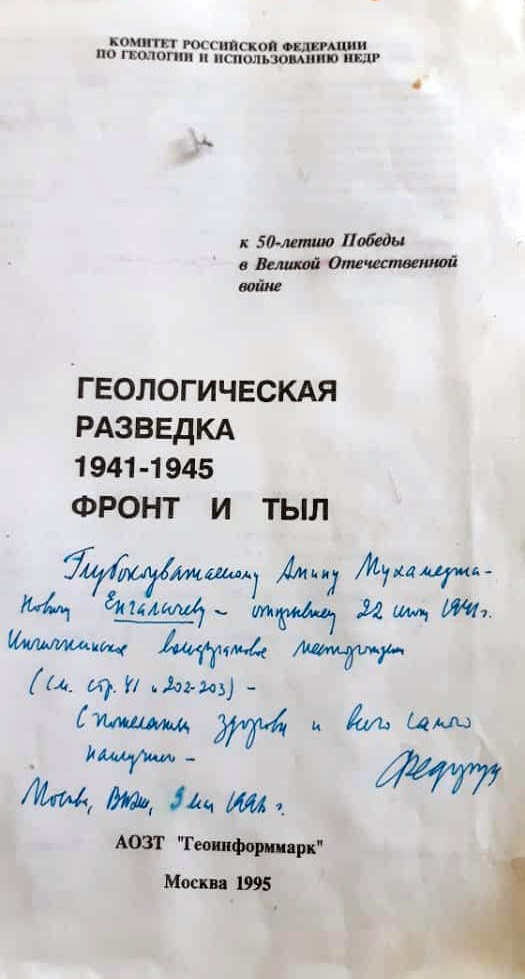 КОМИТЕТ РОССИЙСКОЙ ФЕДЕРАЦИИ
ПО ГЕОЛОГИИ И ИСПОЛЬЗОВАНИЮ НЕДР
к 50-летию Победы
в Великой Отечественной
войне
ГЕОЛОГИЧЕСКАЯ
РАЗВЕДКА
1941-1945
ФРОНТ И ТЫЛ
Глубокоуважаемому Амину Мухамеджа-
новичу Енгалычеву – открывшему 22 1941 г.
Ингичкинское вольфрамовое месторождение
(см. стр. 41 и 202-203) –
С пожеланием здоровья и всего самого
наилучшего –
Москва, 9 мая г.
АОЗТ "Геоинформмарк"
Москва 1995